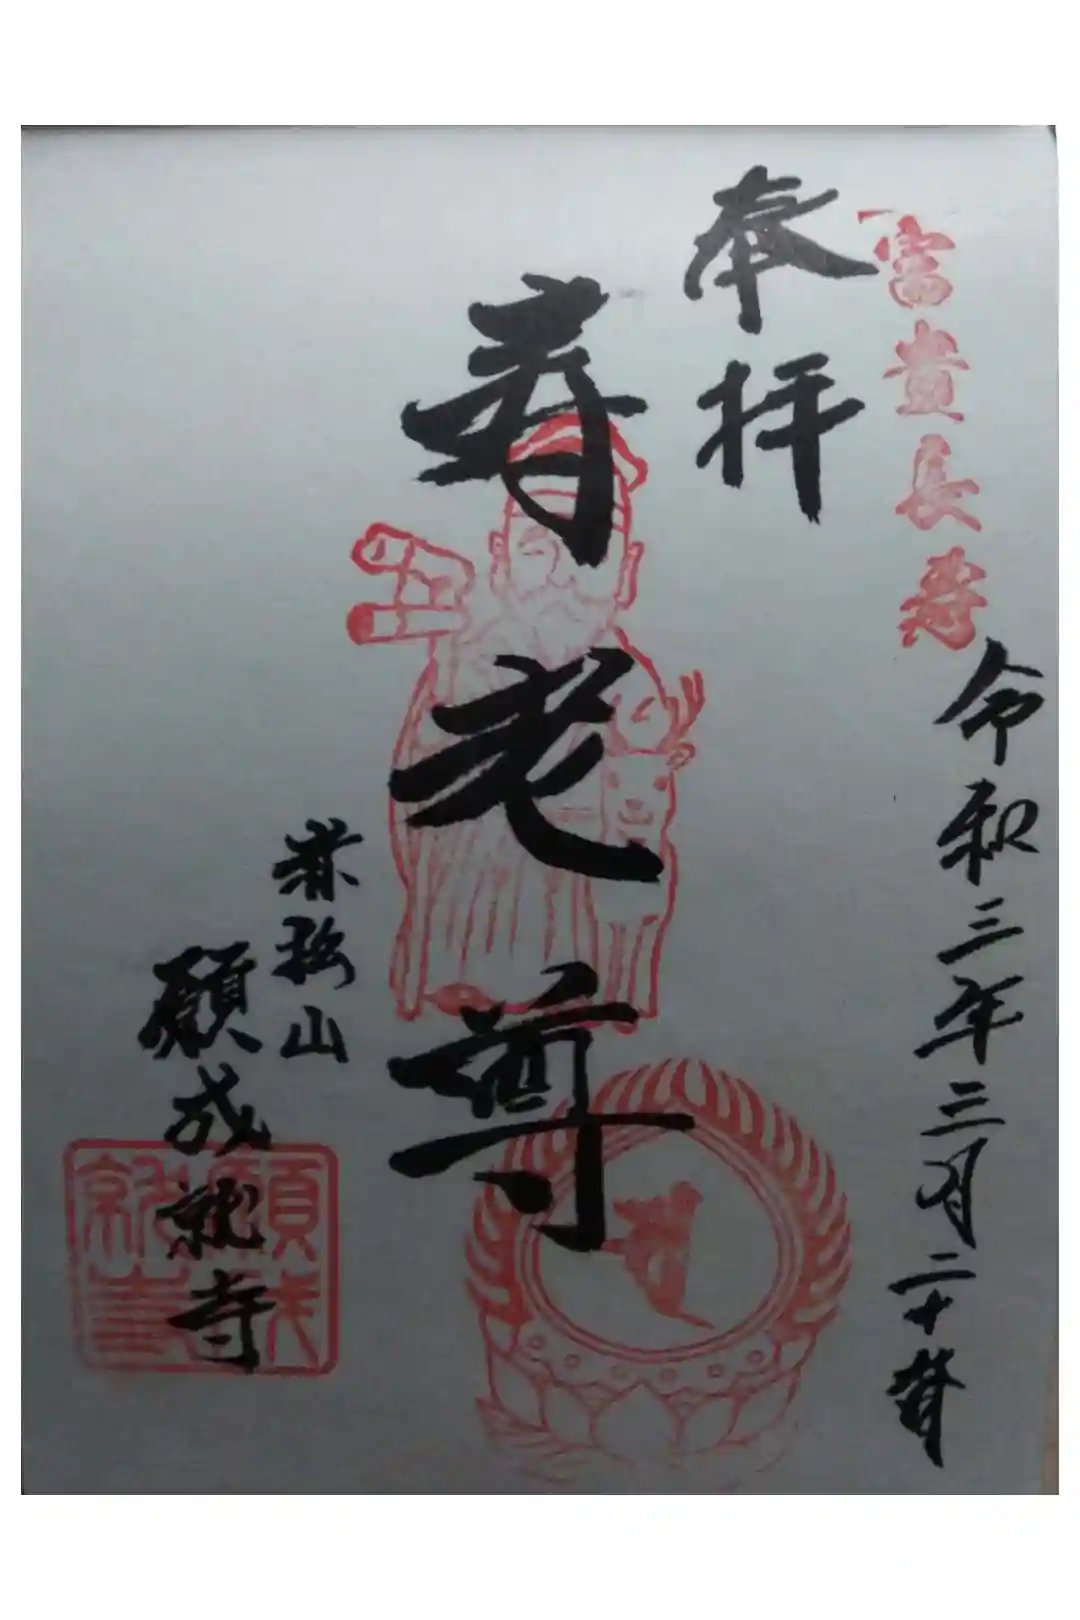 富貴長寿
奉拝
令和三年三月二十
寿老尊
松山
願成就寺
願成
就寺